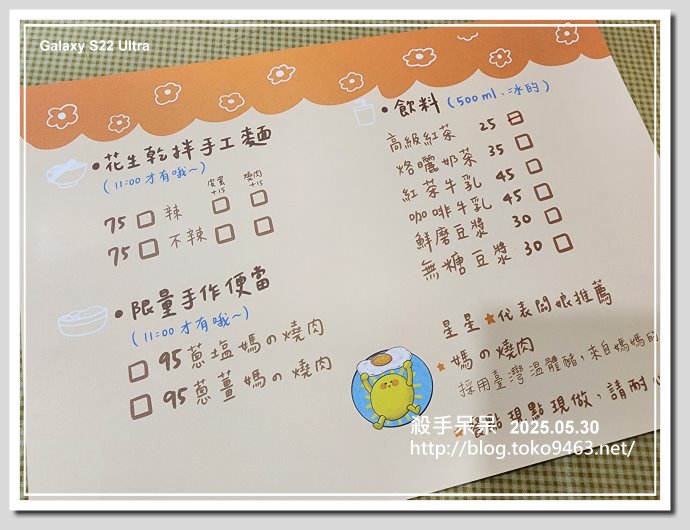 Galaxy S22 Ultra
•花生乾拌手工麵
(11:00才有哦~)
皮蛋+15 燒肉+15
75 □ 辣 □ □
75 □ 不辣 □ □
•限量手作便當
(11:00才有哦~)
□ 95 蔥塩媽の燒肉
□ 95 蔥薑媽の燒肉
•飲料(500ml、冰的)
高級紅茶 25 □
烙曬奶茶 35 □
紅茶牛乳 45 □
咖啡牛乳 45 □
鮮磨豆漿 30 □
無糖豆漿 30 □
星星★代表闆娘推薦
★媽の燒肉
採用臺灣溫體豬,來自媽媽的
現點現做,請耐心
殺手呆呆 2025.05.30
http://blog.toko9463.net/